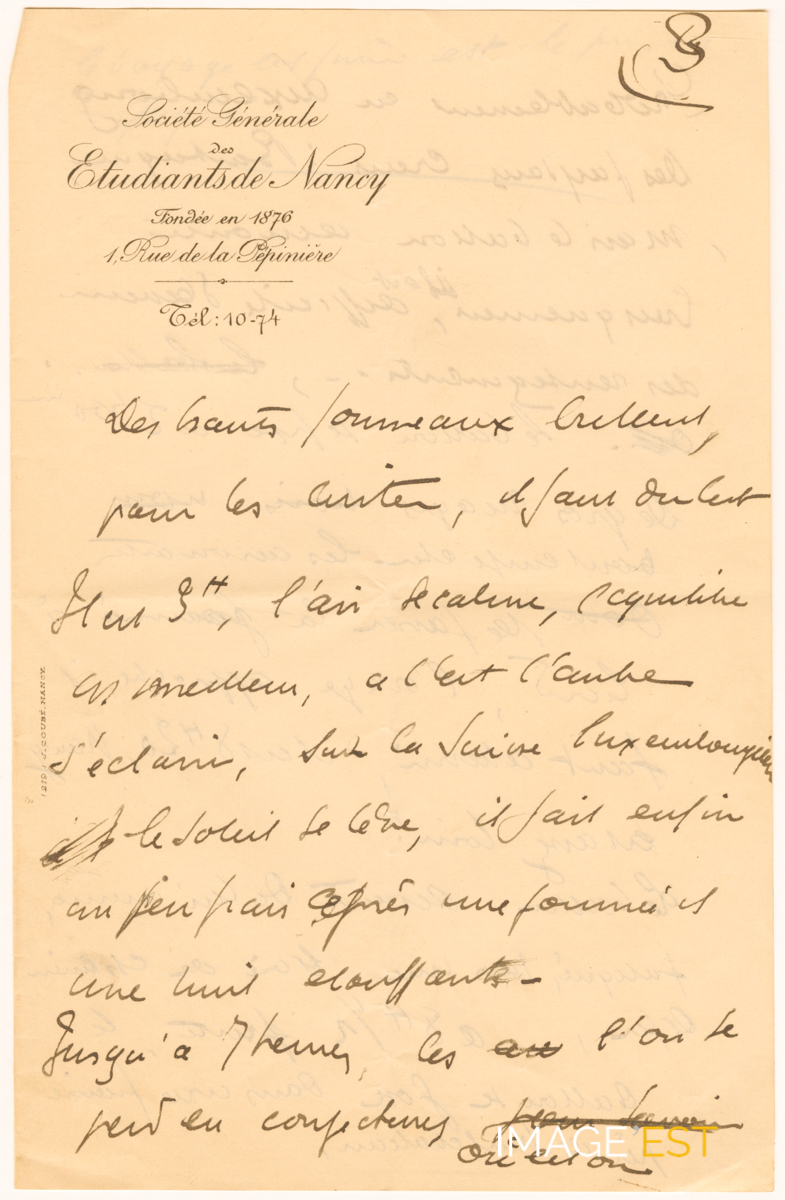 8
Société Générale
des
Etudiants de Nancy
Fondée en 1876
1, Rue de la Pépinière
Tél: 10-74
Des hauts fourneaux brillent,
pour les éviter, il faut du lest
Il est 3H, l'air se calme, l'equilibre
est meilleur, a l'est l'aube
s'eclaircir, sur la Suisse luxembourgeoise
le soleil se lève, il fait enfin
un peu frais après une journée et
une nuit etouffante -
Jusqu'a 7 heures, les au l'on se
perd en conjectures pour savoir
où est on
IMAGE EST